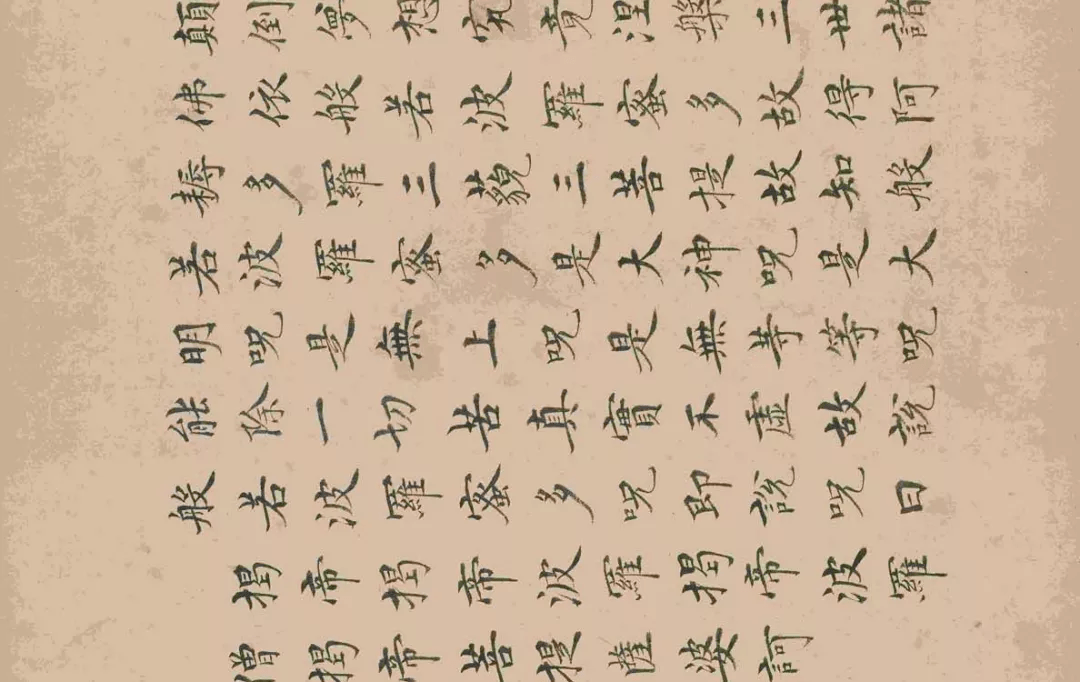 顛倒夢想究竟涅槃三世諸
佛依般若波羅蜜多故得阿
耨多羅三藐三菩提故知般
若波羅蜜多是大神咒是大
明咒是無上咒是無等等咒
能除一切苦真實不虛故說
般若波羅蜜多咒即說咒曰
揭帝揭帝波羅揭帝波羅
僧揭帝菩提薩婆訶